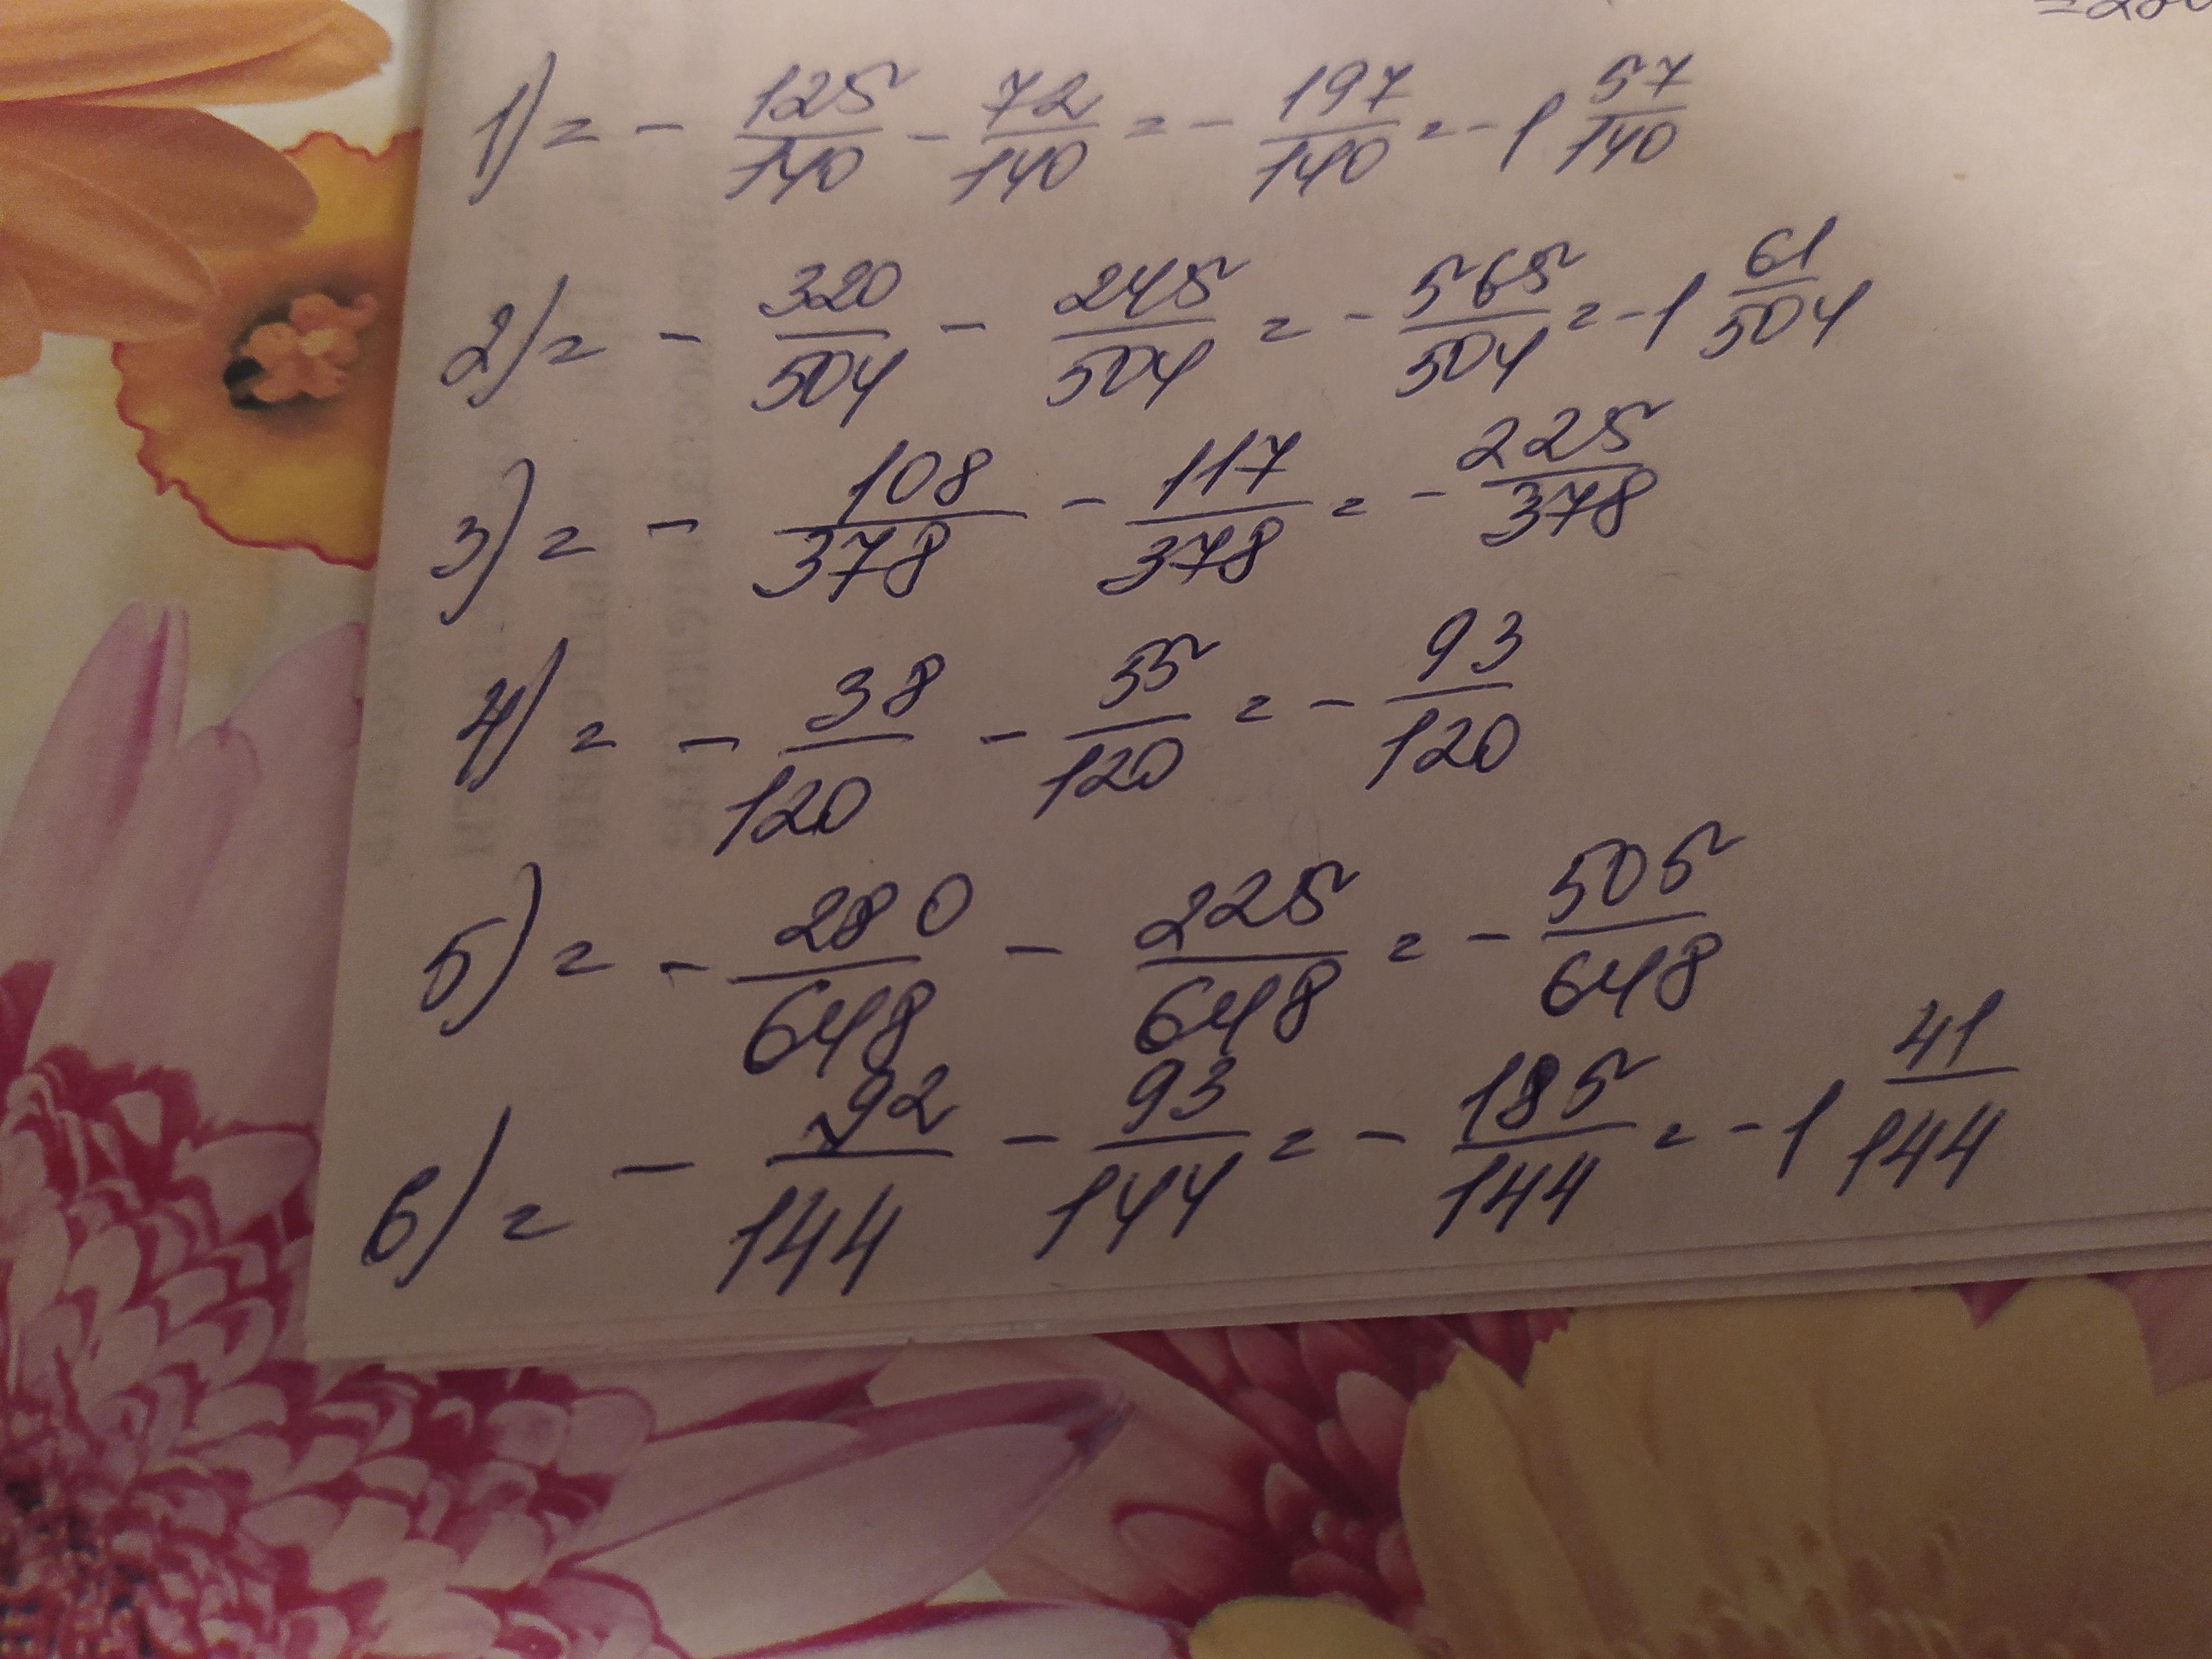 1) = - 125/140 - 72/140 = - 197/140 = - 1 57/140
2) = - 320/504 - 245/504 = - 565/504 = - 1 61/504
3) = - 108/378 - 117/378 = - 225/378
4) = - 38/120 - 55/120 = - 93/120
5) = - 280/648 - 225/648 = - 505/648
6) = - 92/144 - 93/144 = - 185/144 = - 1 41/144